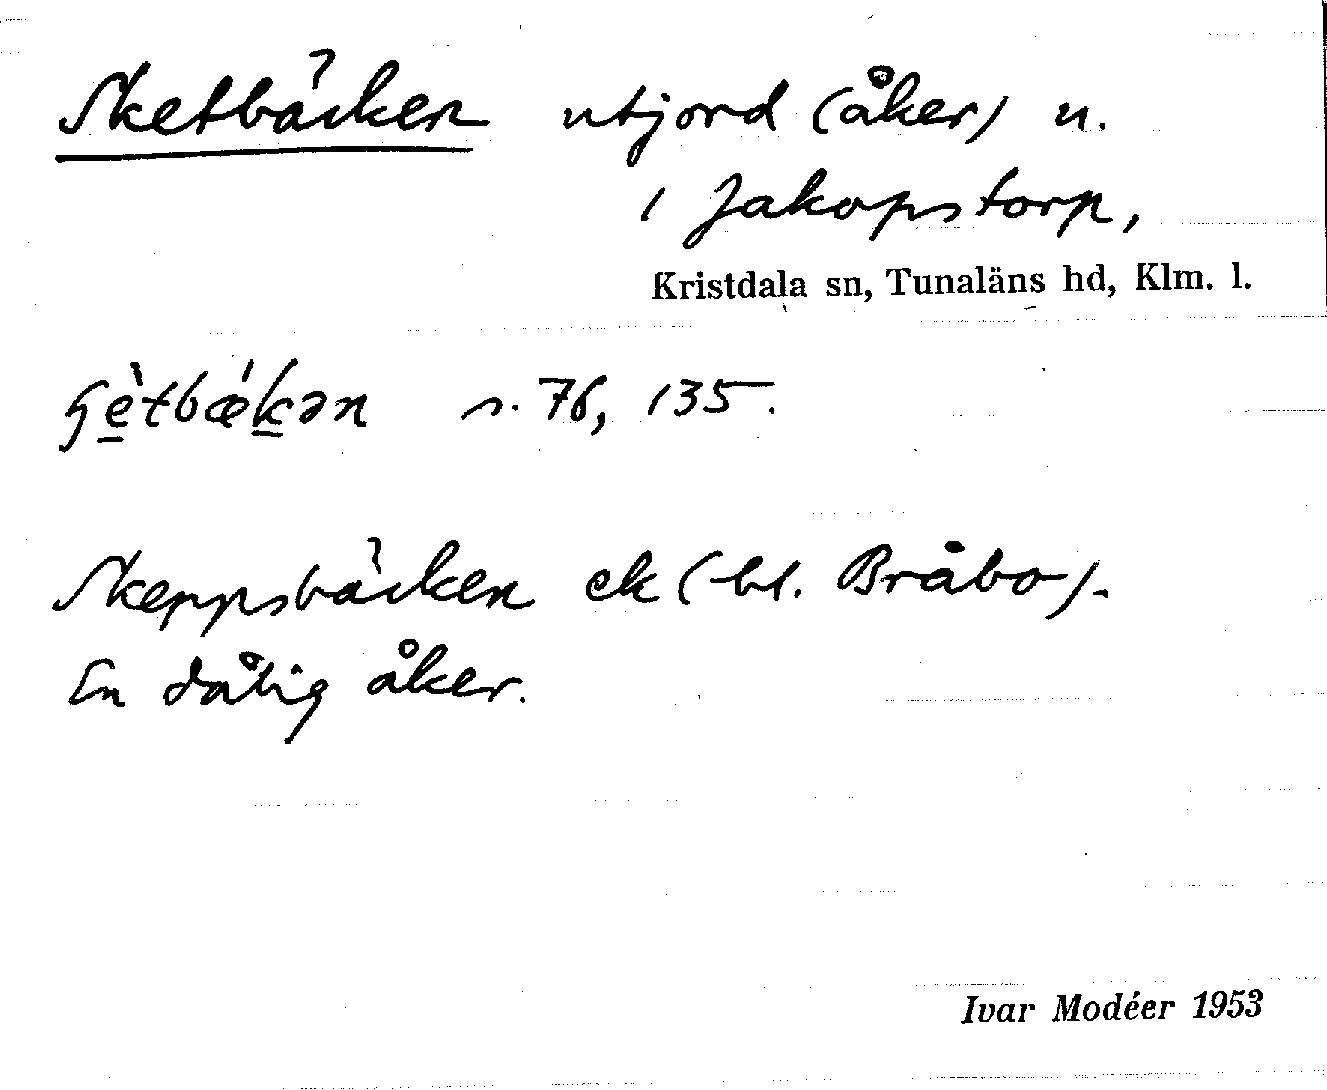 Sketbäcken utjord (åker) u.
i Jakopstorp,
Kristdala sn, Tunaläns hd, Klm. l.
s. 76, 135.
Skeppsbäcken ek (bl. Bråbo).
En dålig åker.
Ivar Modéer 1953